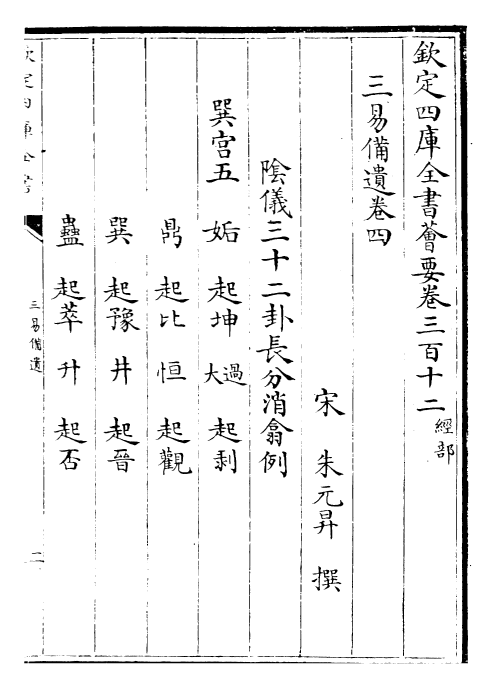 欽定四庫全書薈要卷三百十二 經部
三易備遺卷四
宋 朱元昇 撰
陰儀三十二卦長分消翕例
巽宫五 姤 起坤 大過 起剥
鼎 起比 恒 起觀
巽 起豫 井 起晉
蠱 起萃 升 起否
三易備遺